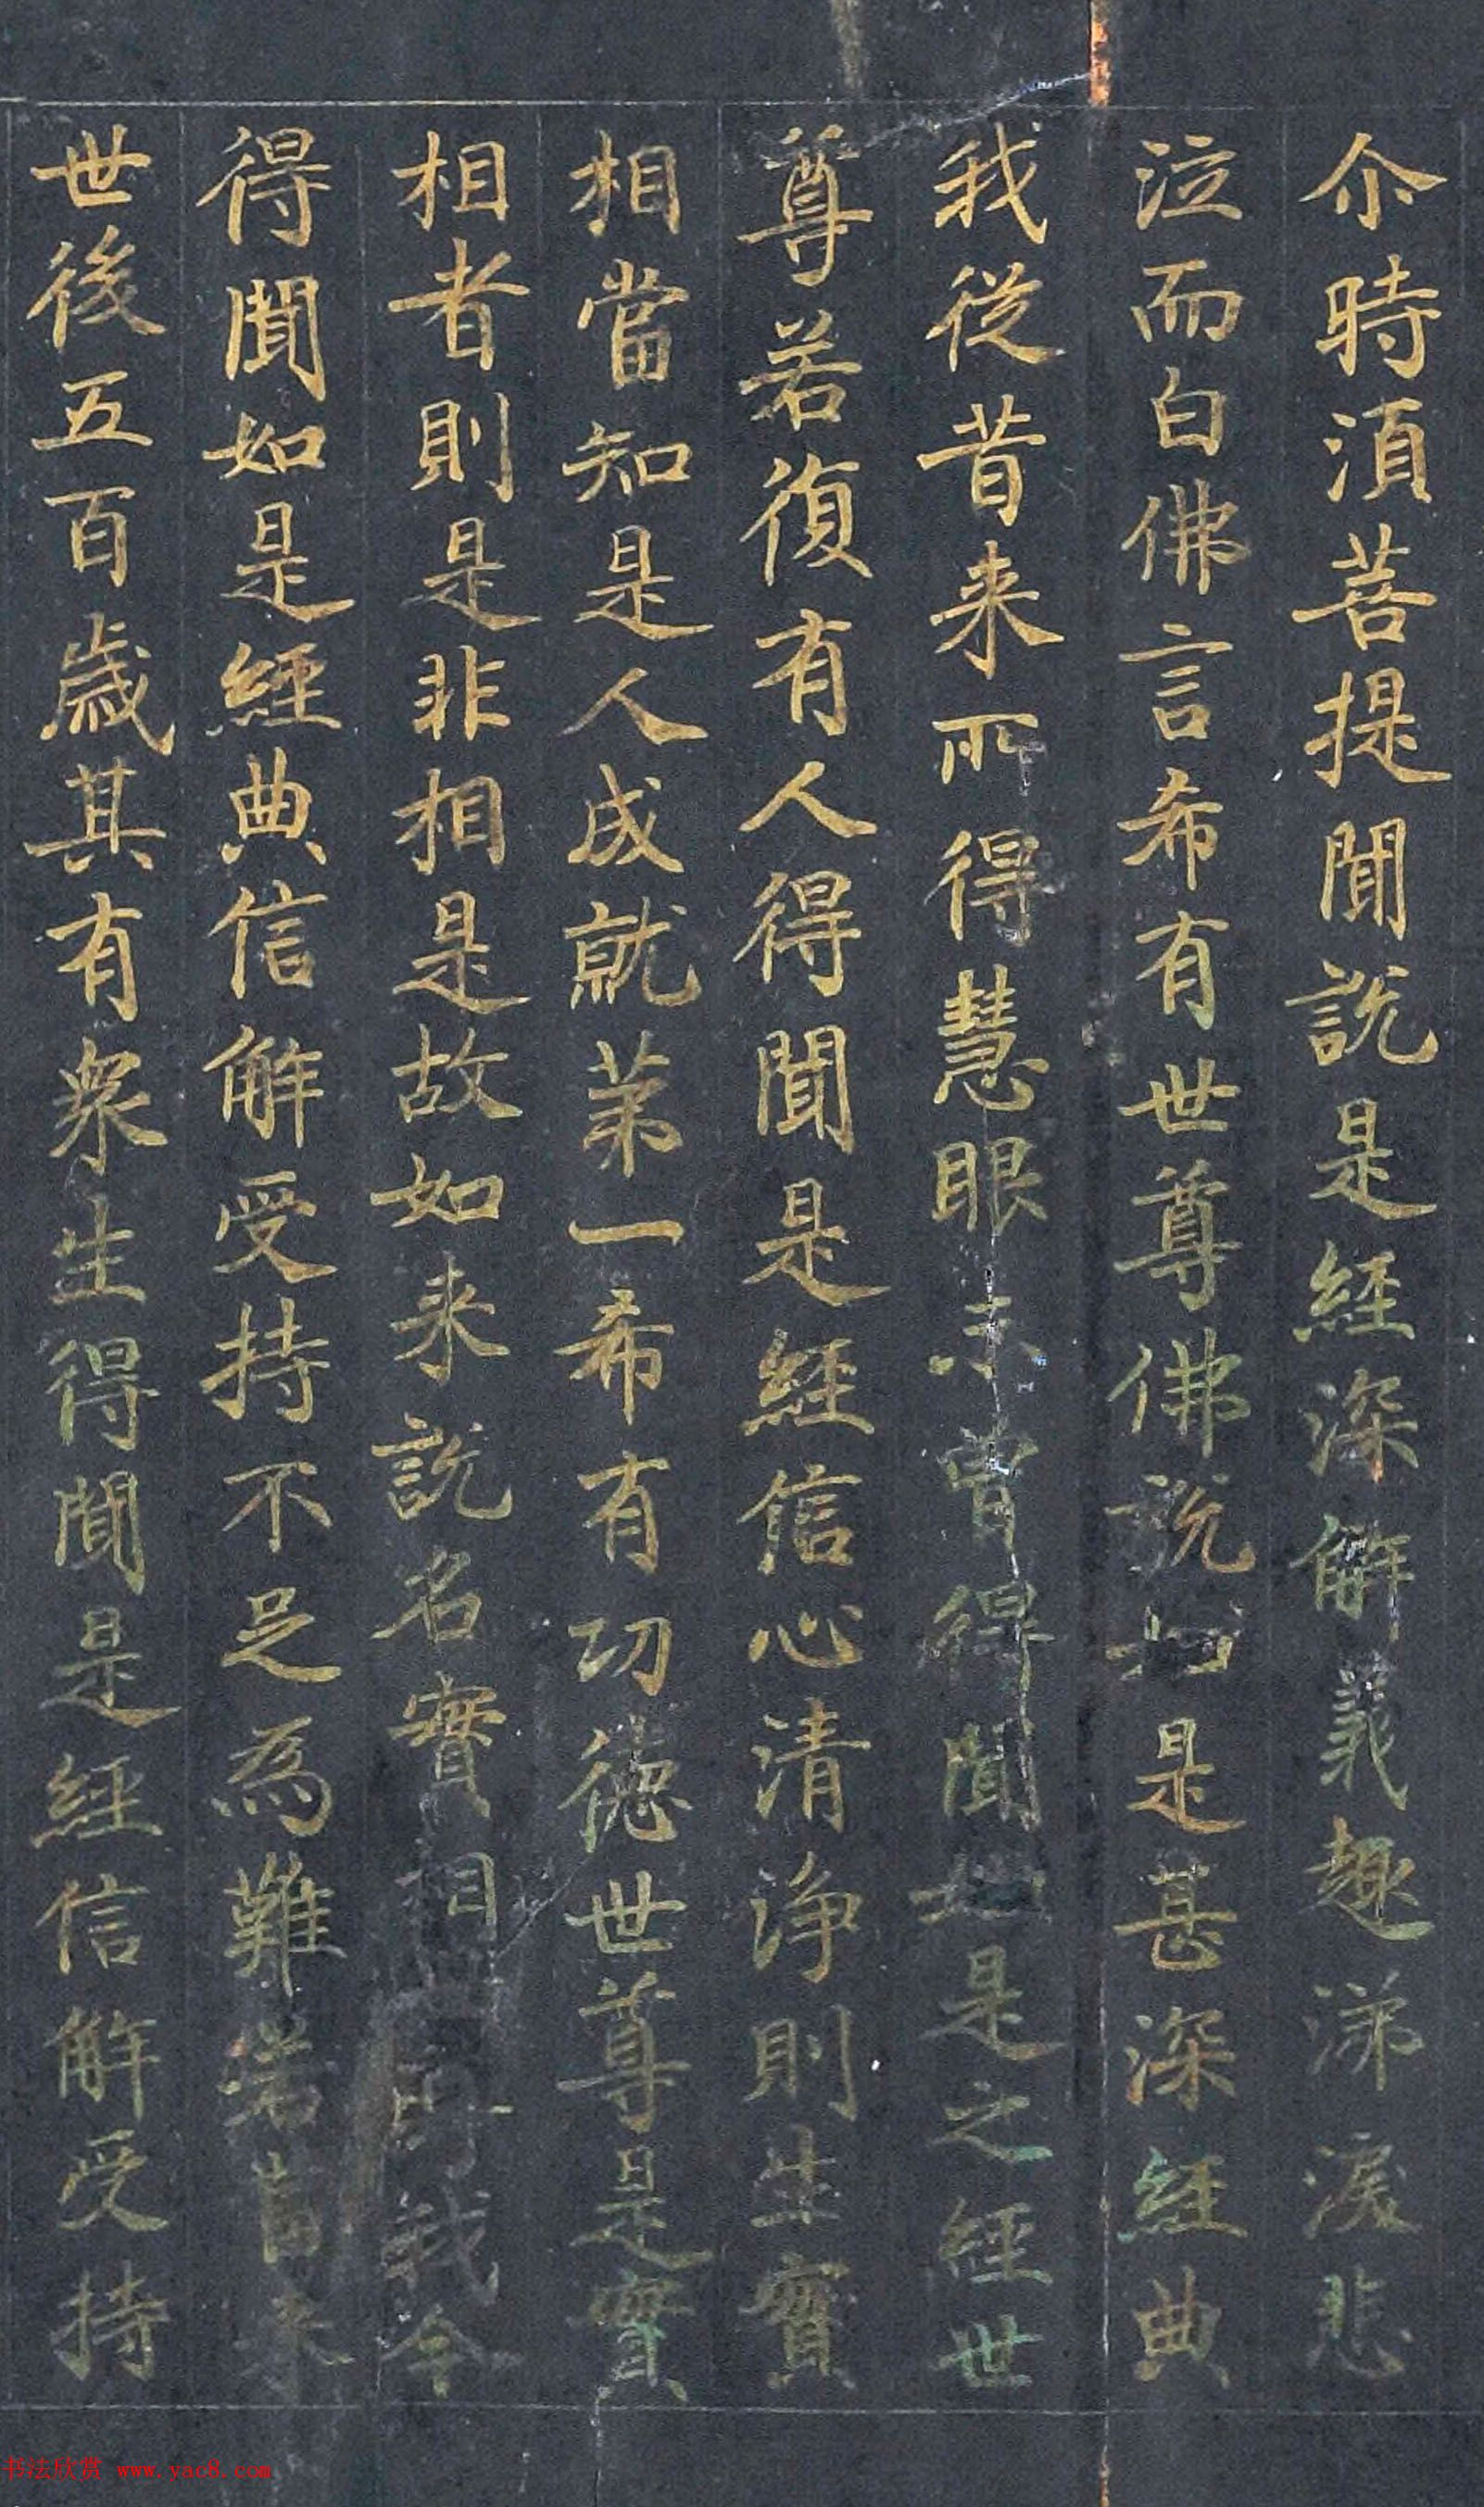 尒時湏菩提聞說是経深解義趣涕淚悲
泣而白佛言希有世尊佛說如是甚深経典
我従昔来所得慧眼未曾得聞如是之経世
尊若復有人得聞是経信心清浄則生實
相當知是人成就苐一希有功德世尊是實
相者則是非相是故如来說名實相世尊我今
得聞如是經典信解受持不足為難若當来
世後五百歳其有衆生得聞是経信解受持
书法欣赏 www.yac8.com